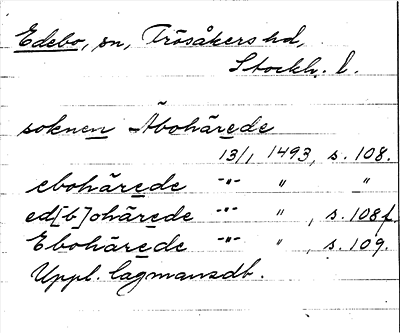 Edebo, sn, Frösåkers hd,
Stockh. l.
soknen Äbohärede
13/1, 1493, s. 108.
ebohärede -"- " "
ed[b]ohärede -"- " , s. 108f.
Ebohärede -"- " , s. 109.
Uppl. lagmansdb.